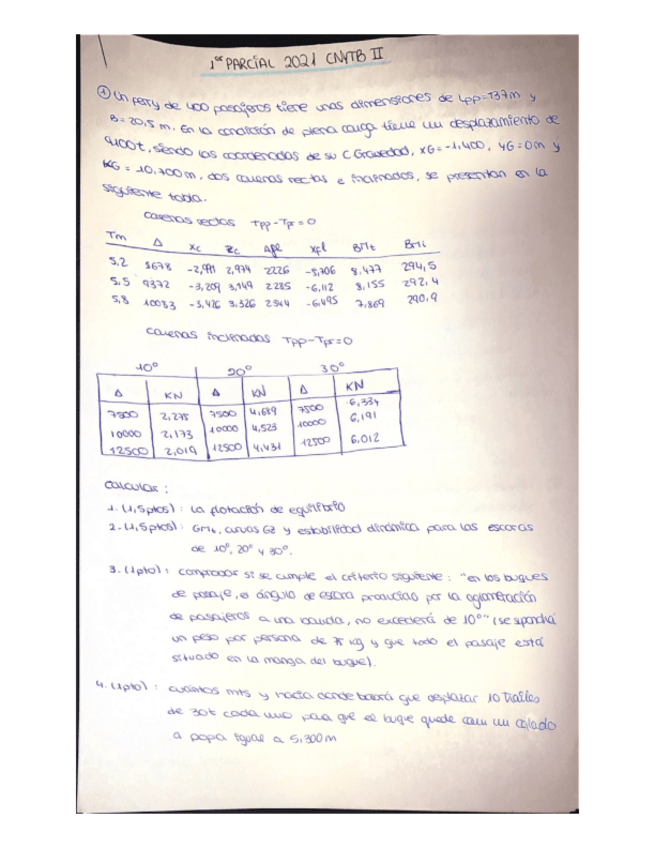 1er PARCIAL 2021 CNYTB II
① Un ferry de 400 pasajeros tiene unas dimensiones de Lpp=137m y
B=20,5 m. En la condición de plena carga tiene un desplazamiento de
9100t, siendo las coordenadas de su C Gravedad, XG=-1,400, YG=0m y
KG = 10,700m, dos carenas rectas e inclinadas, se presentan en la
siguiente tabla.
carenas rectas Tpp-Tpr=0
Tm Δ Xc Zc Afl Xfl BMt BMl
5,2 2,974 2226 8,477 294,5
5,5 9372 -3,209 3,149 2285 -6,112 8,155 292,4
5,8 -3,426 3,326 2344 -6,495 7,869 290,9
carenas inclinadas Tpp-Tpr=0
10° 20° 30°
Δ KN Δ KN Δ KN
7500 2,275 7500 4,689 7500 6,334
10000 2,173 10000 4,523 10000 6,191
12500 2,019 12500 4,431 12500 6,012
calcular:
1. (1,5ptos): La flotación de equilibrio
2. (1,5ptos): GMt, curvas GZ y estabilidad dinámica para las escoras
de 10°, 20° y 30°.
3. (1pto): comprobar si se cumple el criterio siguiente: "en los buques
de pasaje, el ángulo de escora producido por la aglomeración
de pasajeros a una banda, no excederá de 10°" (se supondrá
un peso por persona de 75 kg y que todo el pasaje está
situado en la manga del buque).
4. (1pto): cuántos mts y hacia donde habrá que desplazar 10 trailes
de 30t cada uno para que el buque quede con un calado
a popa igual a 5,300m